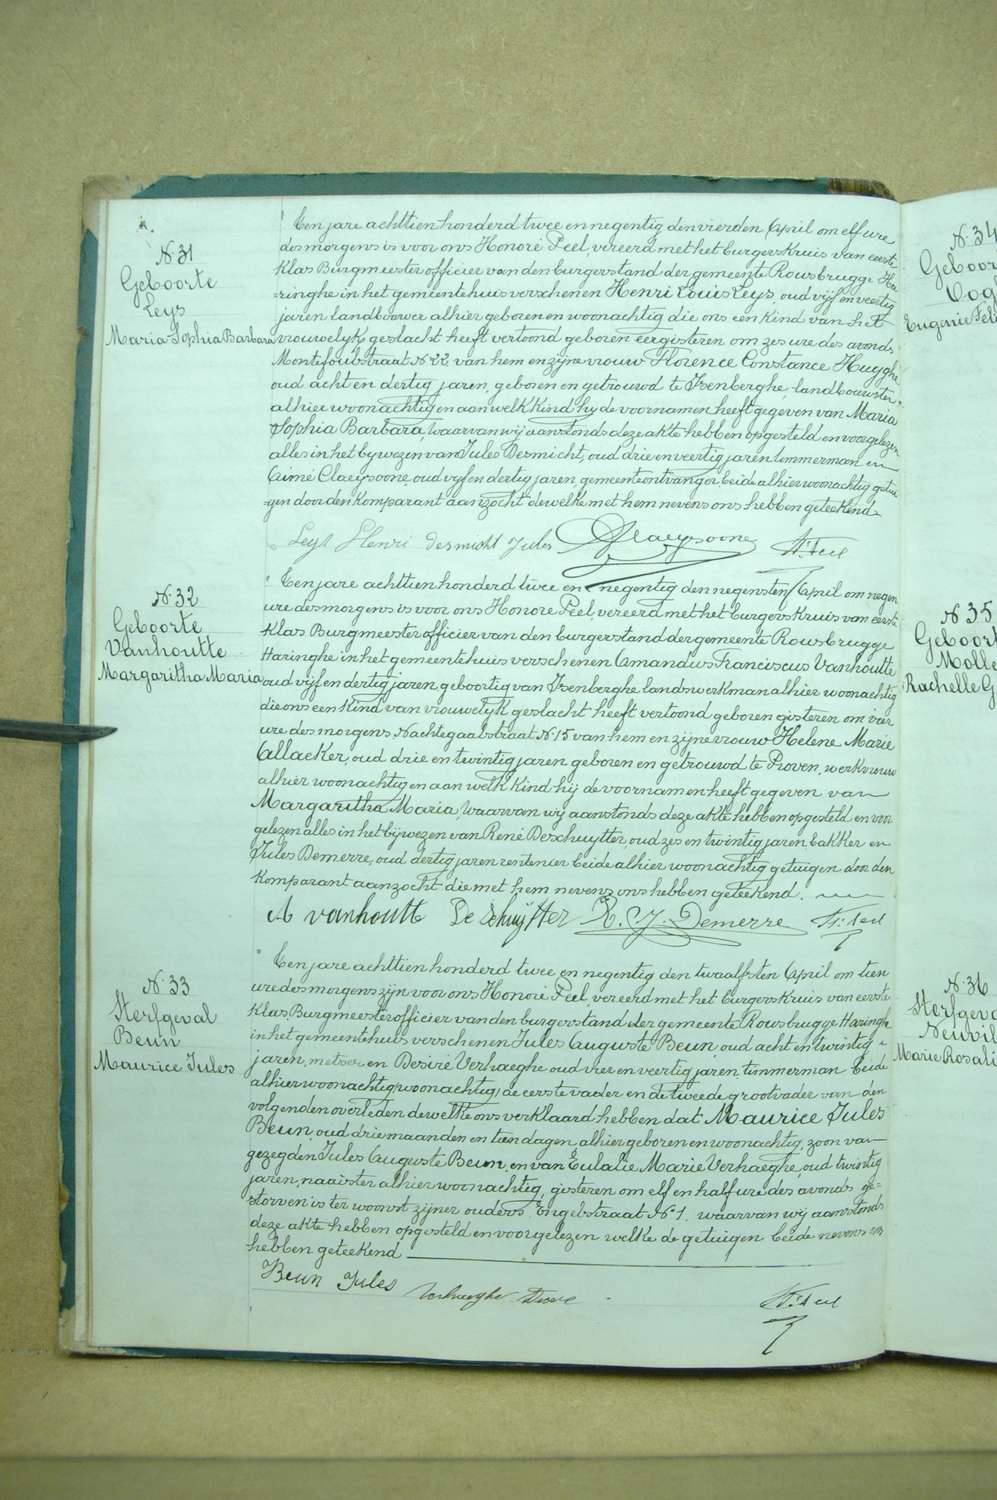 N. 31
Geboorte
Leys
Maria Sophia Barbara
Ten jare achttien honderd twee en negentig den vierden April om elf ure
des morgens is voor ons Honoré Peel, vereerd met het burgerskruis van eerste
klas Burgmeester officier van den burgerstand der gemeente Rousbrugge Ha
ringhe in het gemeentehuis verschenen Henri Louis Leys, oud vijf en veertig
jaren landbouwer alhier geboren en woonachtig die ons een kind van het
vrouwelijk geslacht heeft vertoond geboren eergisteren om zes ure des avonds
straat N. 22 van hem en zijne vrouw Florence Constance Huyghe
oud acht en dertig jaren, geboren en getrouwd te Isenberghe, landbouwster
alhier woonachtig en aan welk kind hij de voornamen heeft gegeven van Maria
Sophia Barbara, waarvan wij aanstonds deze akte hebben opgesteld en voorgelezen
alles in het bijwezen van Jules Desmicht, oud drie en veertig jaren timmerman en
Aimé Claeysoone, oud vijf en dertig jaren, gemeenteontvanger beide alhier woonachtig getui
gen door den komparant aanzocht dewelke met hem nevens ons hebben geteekend
Leys Henri Desmicht Jules Claeysoone H. Peel
N. 32
Geboorte
Vanhoutte
Margaritha Maria
Ten jare achttien honderd twee en negentig den negensten April om negen
ure des morgens is voor ons Honoré Peel, vereerd met het burgerskruis van eerste
klas Burgmeester officier van den burgerstand der gemeente Rousbrugge
Haringhe in het gemeentehuis verschenen Amandus Franciscus Vanhoutte
oud vijf en dertig jaren geboortig van Isenberghe landswerkman alhier woonachtig
die ons een kind van vrouwelijk geslacht heeft vertoond geboren gisteren om vier
ure des morgens Nachtegaalstraat N. 15 van hem en zijne vrouw Helene Marie
Allacker, oud drie en twintig jaren geboren en getrouwd te Proven, werkvrouw
alhier woonachtig en aan welk kind hij de voornamen heeft gegeven van
Margaritha Maria, waarvan wij aanstonds deze akte hebben opgesteld en voor
gelezen alles in het bijwezen van René Deschuytter, oud zes en twintig jaren bakker en
Jules Demerre, oud dertig jaren rentenier beide alhier woonachtig getuigen door den
komparant aanzocht die met hem nevens ons hebben geteekend.
A vanhoutt De Schuÿtter R. J. Demerre H. Peel
N. 33
Sterfgeval
Beun
Maurice Jules
Ten jare achttien honderd twee en negentig den twaalfsten April om tien
ure des morgens zijn voor ons Honoré Peel, vereerd met het burgerskruis van eerste
klas, Burgmeester officier van den burgerstand der gemeente Rousbrugge Haringhe
in het gemeentehuis verschenen Jules Auguste Beun, oud acht en twintig
jaren, metser en Desiré Verhaeghe oud vier en veertig jaren, timmerman beide
alhier woonachtig (woonachtig) de eerste vader en de tweede grootvader van den
volgenden overleden dewelke ons verklaard hebben dat Maurice Jules
Beun, oud drie maanden en tien dagen, alhier geboren en woonachtig, zoon van
gezegden Jules Auguste Beun, en van Eulalie Marie Verhaeghe, oud twintig
jaren, naaister alhier woonachtig, gisteren om elf en half ure des avonds ge=
storven is ter woonst zijner ouders, Engelstraat N. 1. waarvan wij aanstonds
deze akte hebben opgesteld en voorgelezen welke de getuigen beide nevens ons
hebben geteekend
Beun Jules Verhaeghe H. Peel
N. 34
Geboor
Eugenie
N. 35
Geboort
Molle
Rachelle G
N. 36
Sterfgeva
Marie Rosali